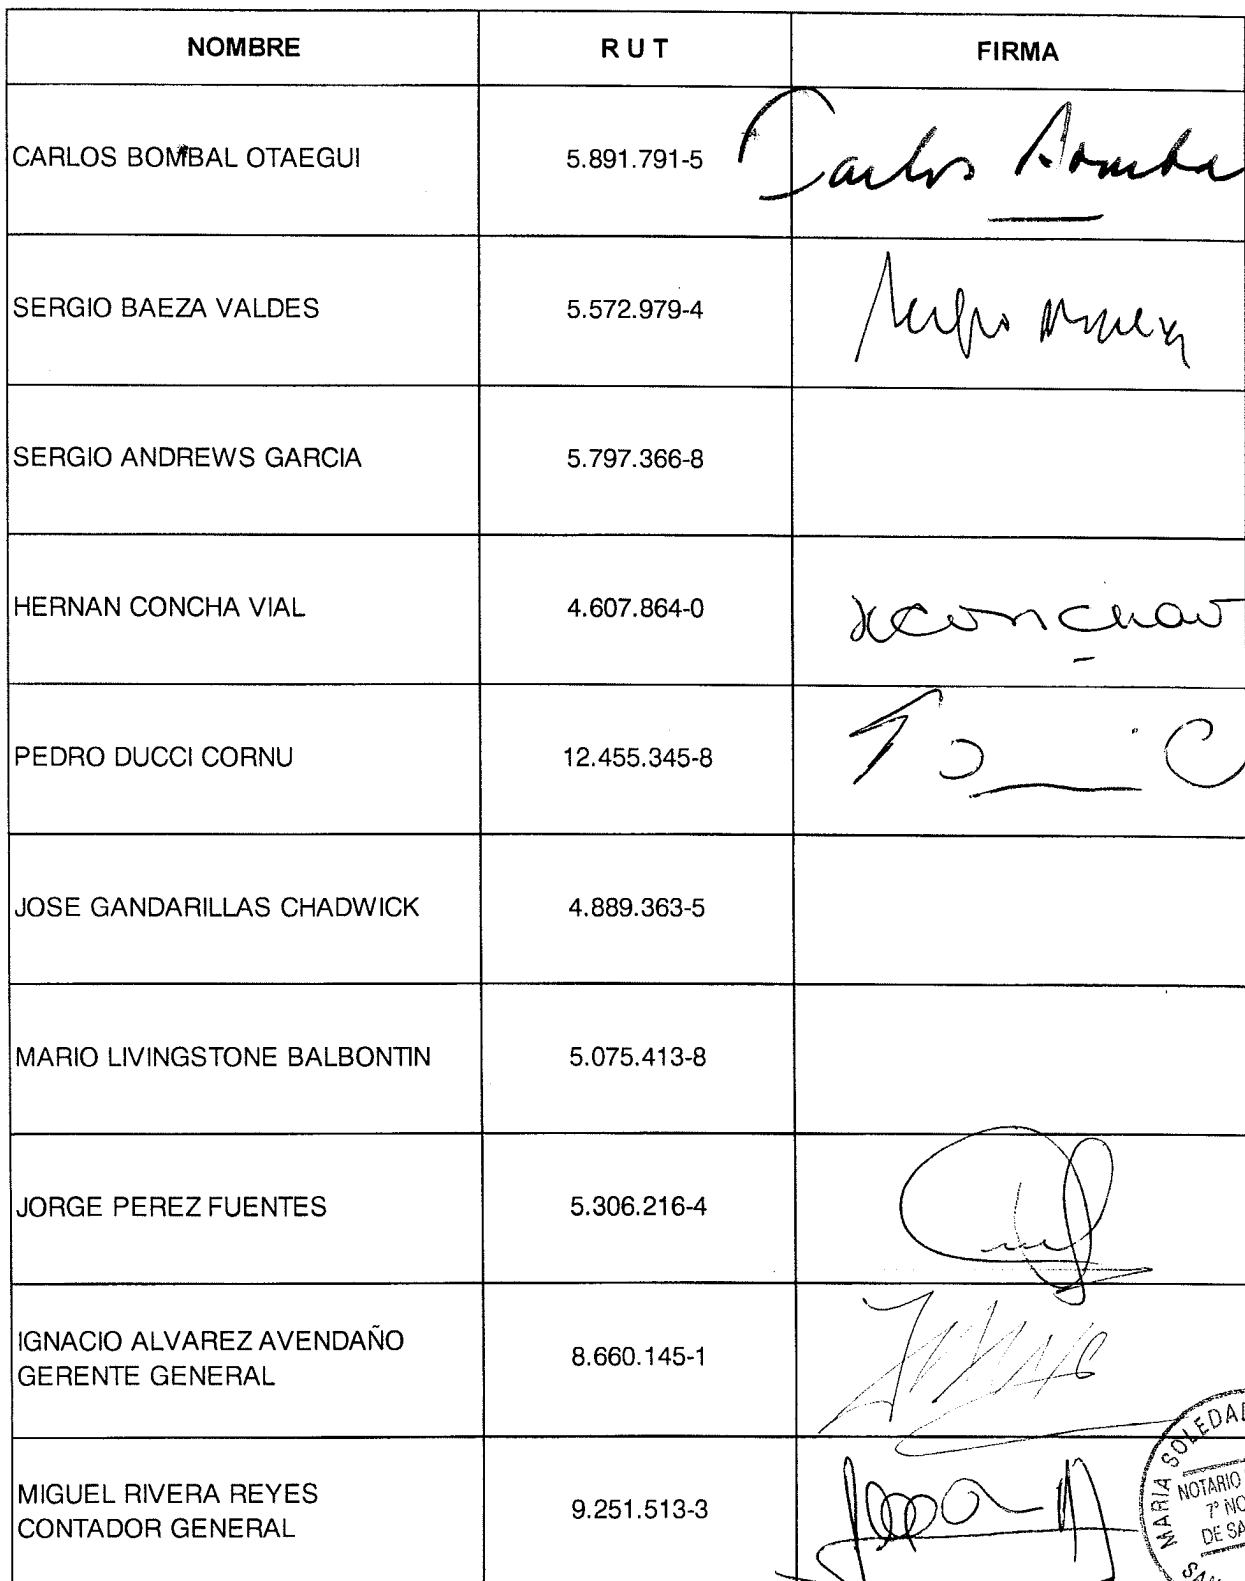 NOMBRE R U T FIRMA
CARLOS BOMBAL OTAEGUI 5.891.791-5 Carlos Bomba
SERGIO BAEZA VALDES 5.572.979-4 Sergio Baeza
SERGIO ANDREWS GARCIA 5.797.366-8
HERNAN CONCHA VIAL 4.607.864-0 HConchaV
PEDRO DUCCI CORNU 12.455.345-8
JOSE GANDARILLAS CHADWICK 4.889.363-5
MARIO LIVINGSTONE BALBONTIN 5.075.413-8
JORGE PEREZ FUENTES 5.306.216-4
IGNACIO ALVAREZ AVENDAÑO
GERENTE GENERAL 8.660.145-1
MIGUEL RIVERA REYES
CONTADOR GENERAL 9.251.513-3
MARIA SOLEDAD
NOTARIO
7° NO
DE SA
SAN